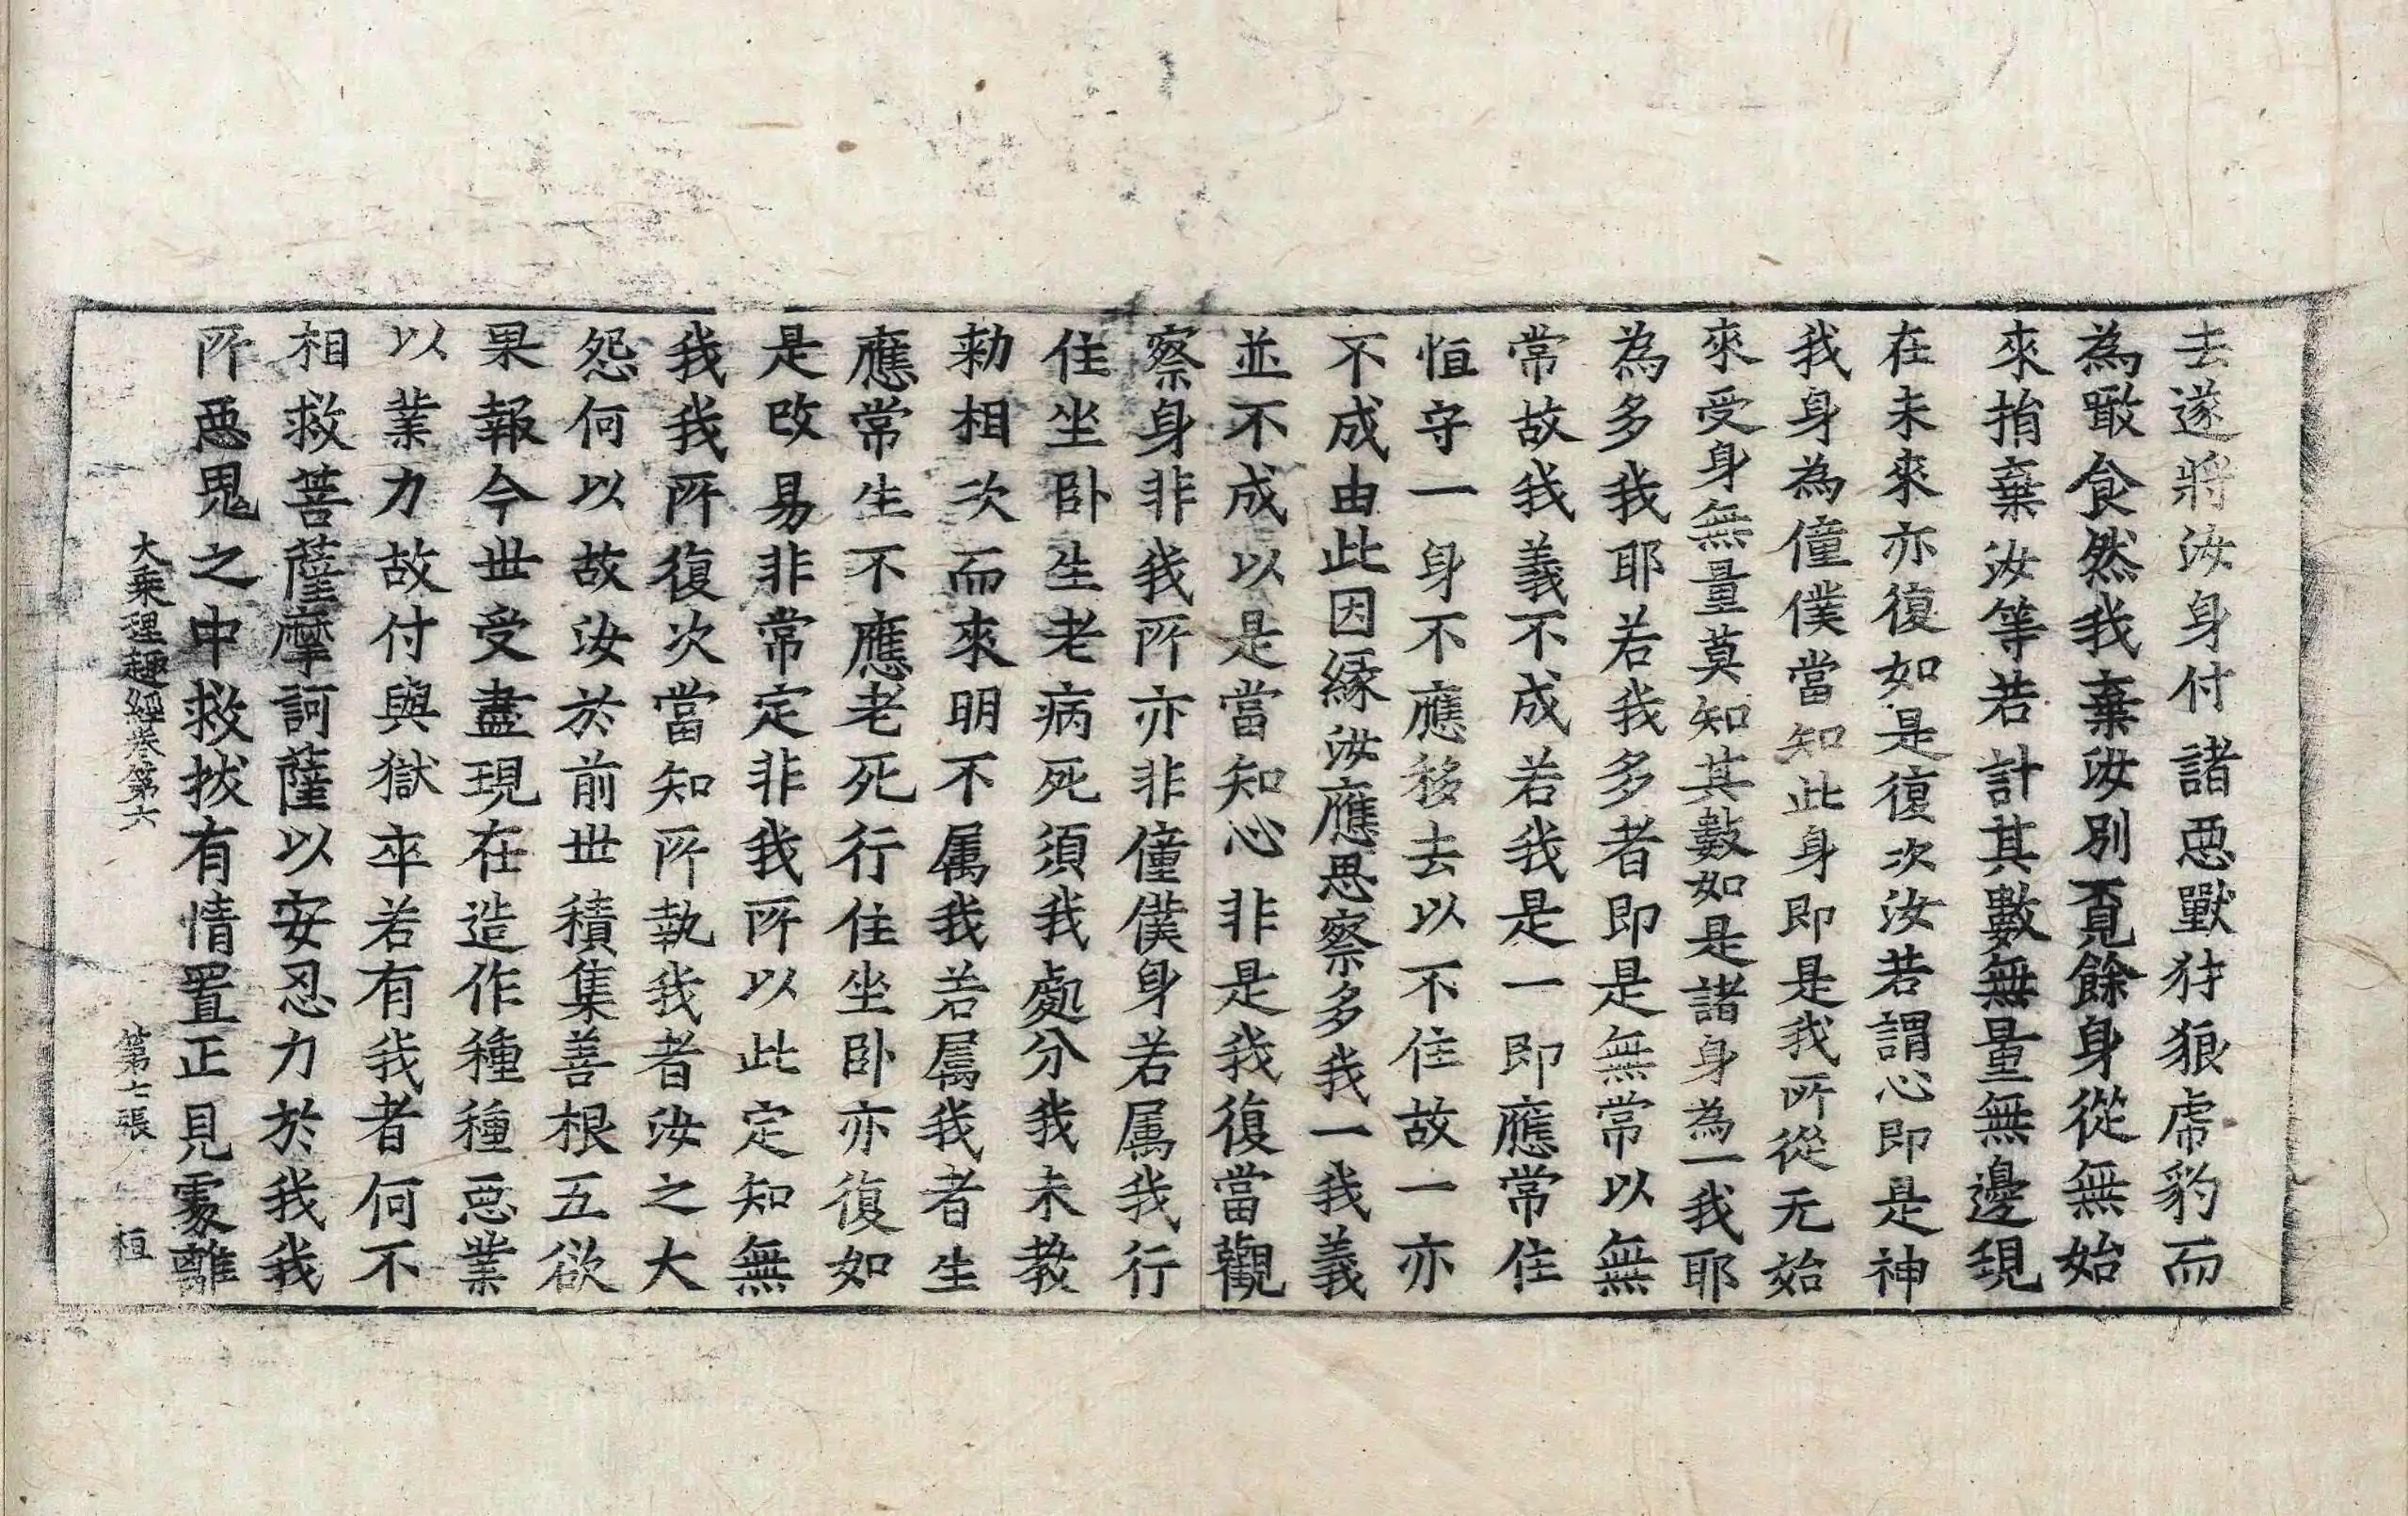 去遂將汝身付諸惡獸犲狼虎豹而
為噉食然我棄汝別覓餘身從無始
來捐棄汝等若計其數無量無邊現
在未來亦復如是復次汝若謂心即是神
我身為僮僕當知此身即是我所從无始
來受身無量莫知其數如是諸身為一我耶
為多我耶若我多者即是無常以無
常故我義不成若我是一即應常住
恒守一身不應移去以不住故一亦
不成由此因緣汝應思察多我一我義
並不成以是當知心非是我復當觀
察身非我所亦非僮僕身若属我行
住坐卧生老病死須我處分我未教
勑相次而來明不属我若属我者生
應常生不應老死行住坐卧亦復如
是改易非常定非我所以此定知無
我我所復次當知所執我者汝之大
怨何以故汝於前世積集善根五欲
果報今世受盡現在造作種種惡業
以業力故付與獄卒若有我者何不
相救菩薩摩訶薩以安忍力於我我
所惡鬼之中救拔有情置正見處離
大乘理趣經卷第六　第七張　桓